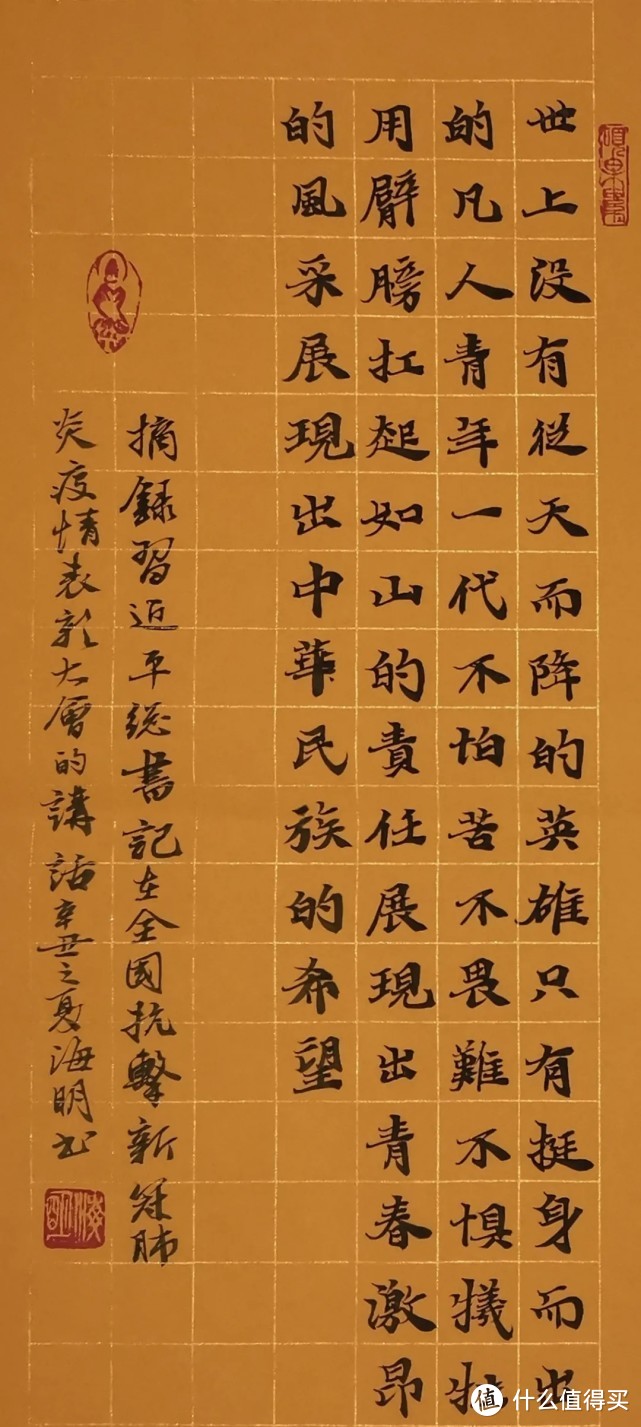 世上没有從天而降的英雄只有挺身而出
的凡人青年一代不怕苦不畏難不惧犧牲
用臂膀扛起如山的責任展現出青春激昂
的風采展現出中華民族的希望
摘録習近平総書記在全國抗擊新冠肺
炎疫情表彰大會的講話辛丑之夏海明书
海明
值 什么值得买